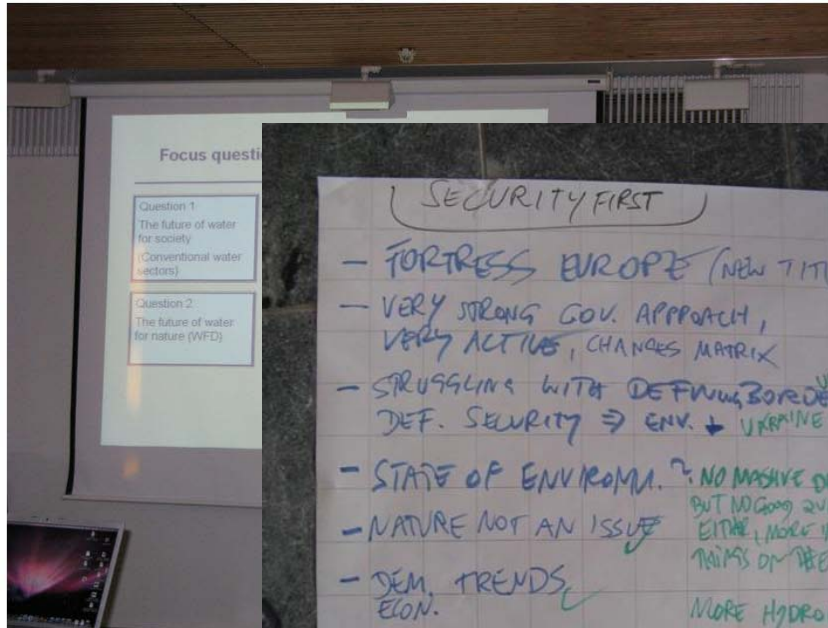 Focus questi
Question 1
The future of water
for society
(Conventional water
sectors)
Question 2
The future of water
for nature (WFD)
SECURITY FIRST
- FORTRESS EUROPE (NEW TIT
- VERY STRONG GOV. APPROACH,
VERY ACTIVE, CHANGES MATRIX
- STRUGGLING WITH DEFINING BORDE
DEF. SECURITY ⇒ ENV. UKRAINE
- STATE OF ENVIRONM. ? NO MASSIVE D
BUT NO GOOD
- NATURE NOT AN ISSUE EITHER, MORE
THINGS ON THE
- DEM. TRENDS
ECON. MORE HYDRO